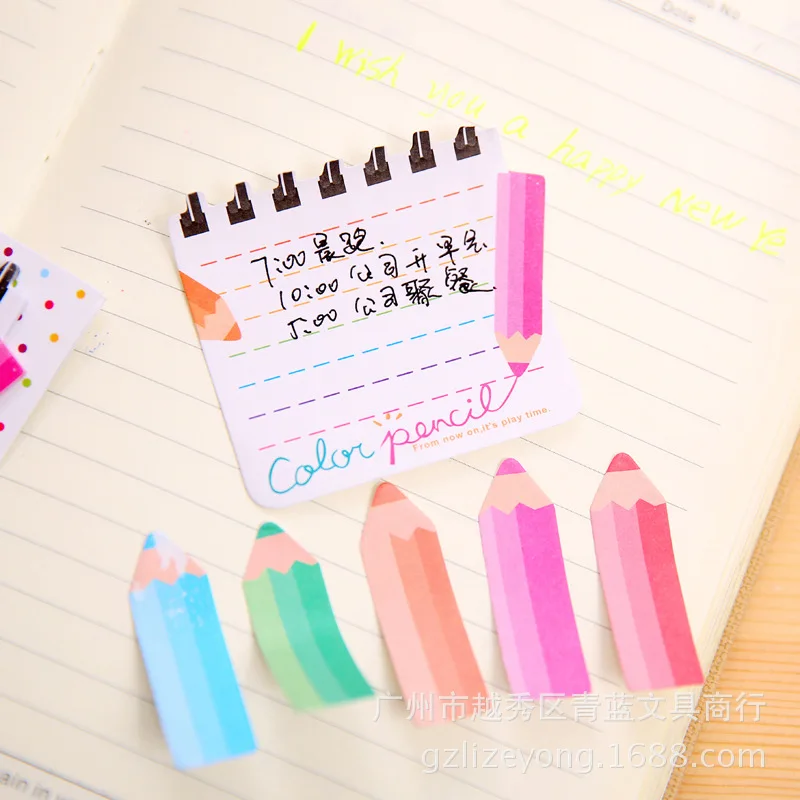 Date
I wish you a happy New Ye
7:00 晨跑.
10:00 公司开早会.
5:00 公司聚餐.
Color pencil
From now on.it's play time.
广州市越秀区青蓝文具商行
gzlizeyong.1688.com
ain in